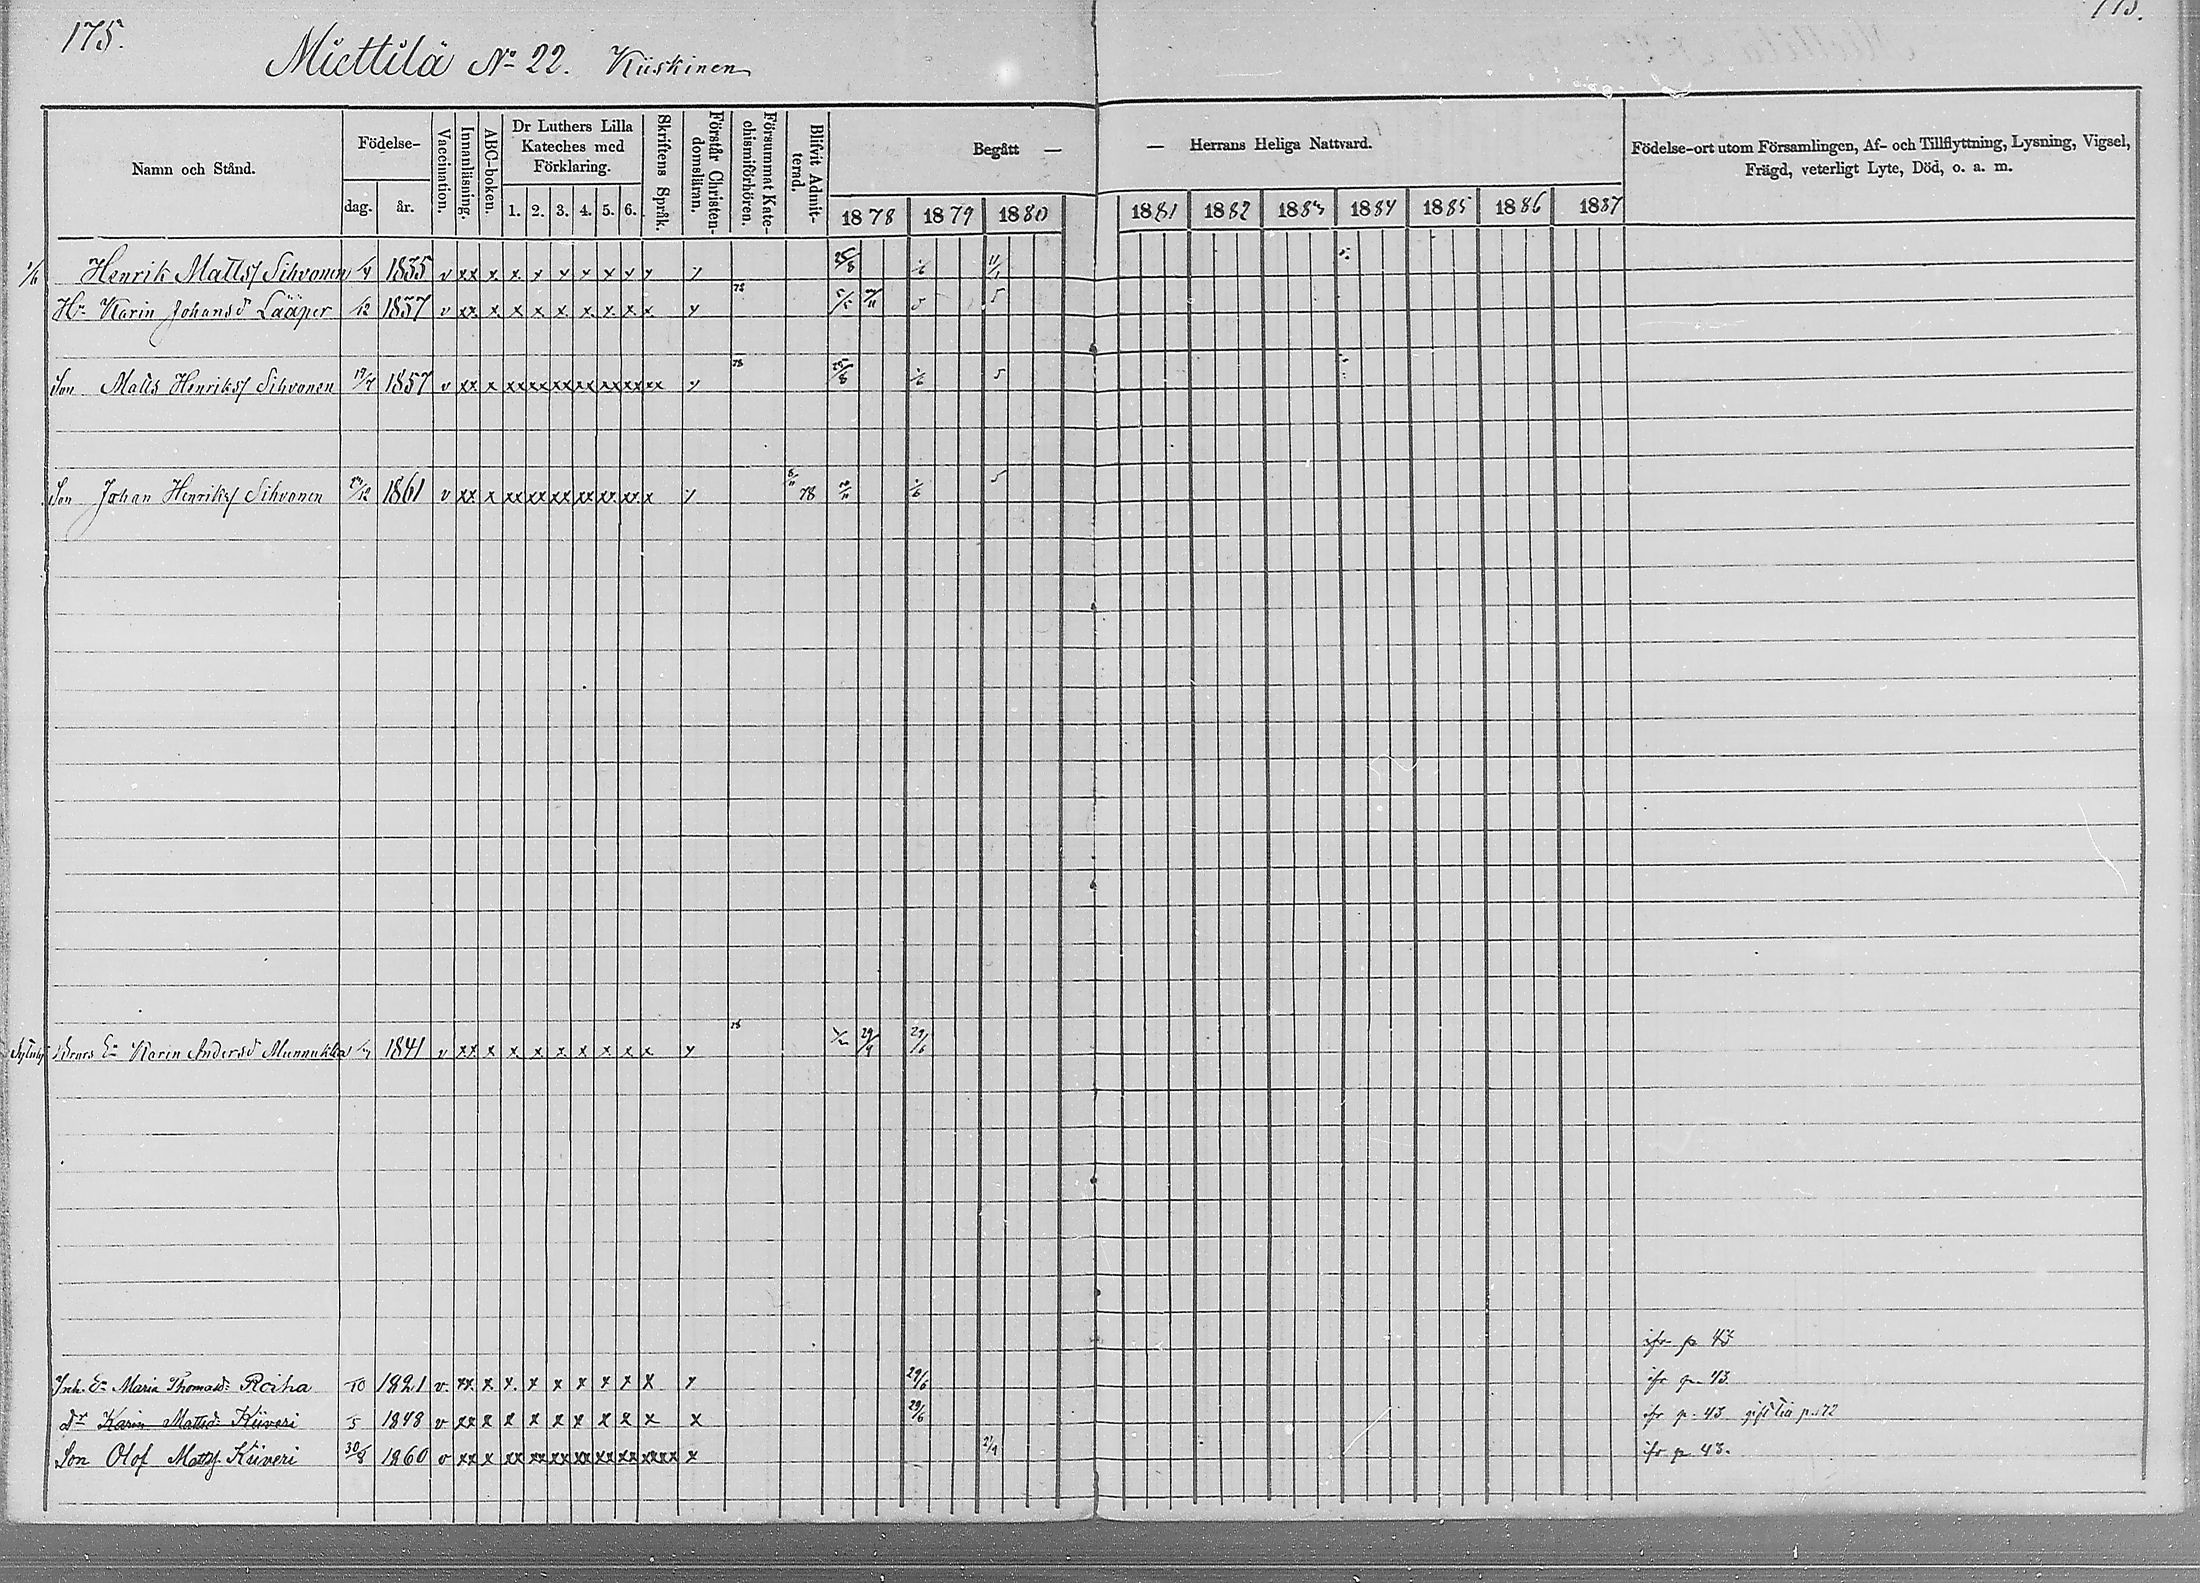 175. 175.
Miettilä No 22. Kiiskinen
Namn och Stånd. Födelse- dag. år. Vaccination. Innanläsning. ABC-boken. Dr Luthers Lilla Kateches med Förklaring. 1. 2. 3. 4. 5. 6. Skriftens Språk. Förstår Christendomsläran. Försummat Katechismiförhören. Blifvit Admitterad. Begått — — Herrans Heliga Nattvard. Födelse-ort utom Församlingen, Af- och Tillflyttning, Lysning, Vigsel, Frägd, veterligt Lyte, Död, o. a. m.
1878 1879 1880 1881 1882 1883 1884 1885 1886 1887
1/6 Henrik Matts/ Sihvonen 1835 v xx x x x x x x x x x
Hu Karin Johansd Lääper 12 1837 v xx x x x x x x x x x 78 5 5
Son Matts Henriks/ Sihvonen 19/7 1857 v xx x xx xx xx xx xx xx xx x 78 25/8 1/6 5
Son Johan Henriks/ Sihvonen 1861 v xx x xx xx xx xx xx xx x x 78 1/6 5
Karin Andersd Munnukka 1841 v xx x x x x x x x x x 78 29/9 29/6
ifr p 43
Inh. Ea Maria Thomasd: Roiha 10 1821 v. xx x x x x x x x x x 29/6 ifr p. 43
Dr Karin Mattsd: Kiiveri 5 1848 v xx x x x x x x x x x 29/6 ifr p. 43 gift till p. 172
Son Olof Matts/ Kiiveri 30/8 1860 v xx x xx xx xx xx xx xx xxxx x 2/1 ifr p 43.